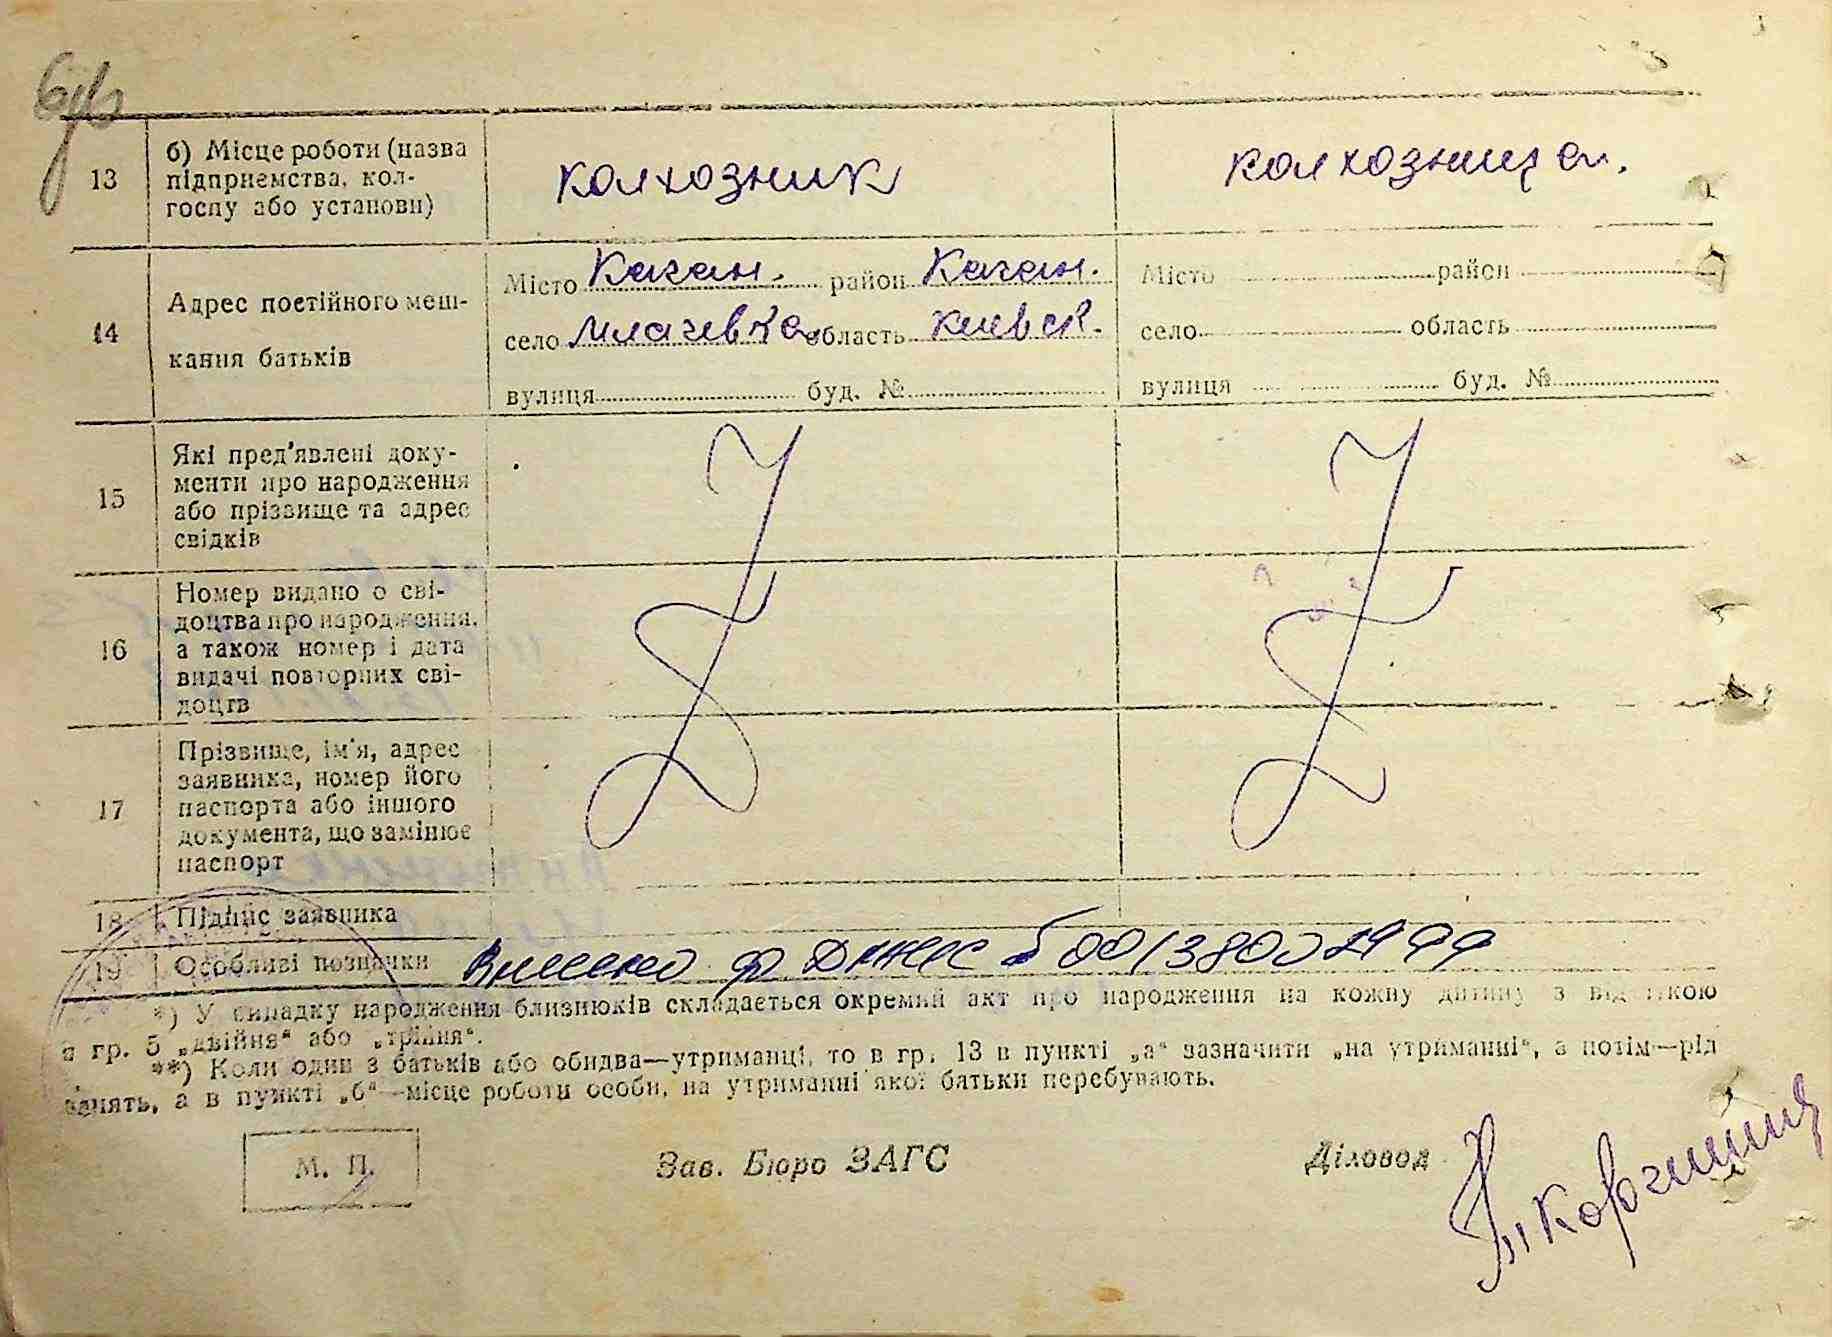 13 б) Місце роботи (назва підприємства, кол-
госпу або установи) колхозник колхозница.
14 Адрес постійного меш-
кання батьків
Місто Каган. район Каган. Місто район
село Млачевка область киевск. село область
вулиця буд. № вулиця буд. №
15 Які пред'явлені доку-
менти про народження
або прізвище та адрес
свідків
16 Номер видано о сві-
доцтва про народження,
а також номер і дата
видачі повторних сві-
доцтв
17 Прізвище, ім'я, адрес
заявника, номер його
паспорта або іншого
документа, що замінює
паспорт
18 Підпис заявника
19 Особливі позначки
*) У випадку народження близнюків складається окремий акт про народження на кожну дитину з відміткою
в гр. 5 „двійня“ або „трійня“.
**) Коли один з батьків або обидва—утриманці, то в гр. 13 в пункті „а“ зазначити „на утриманні“, а потім—рід
занять, а в пункті „б“—місце роботи особи, на утриманні якої батьки перебувають.
М. П. Зав. Бюро ЗАГС Діловод